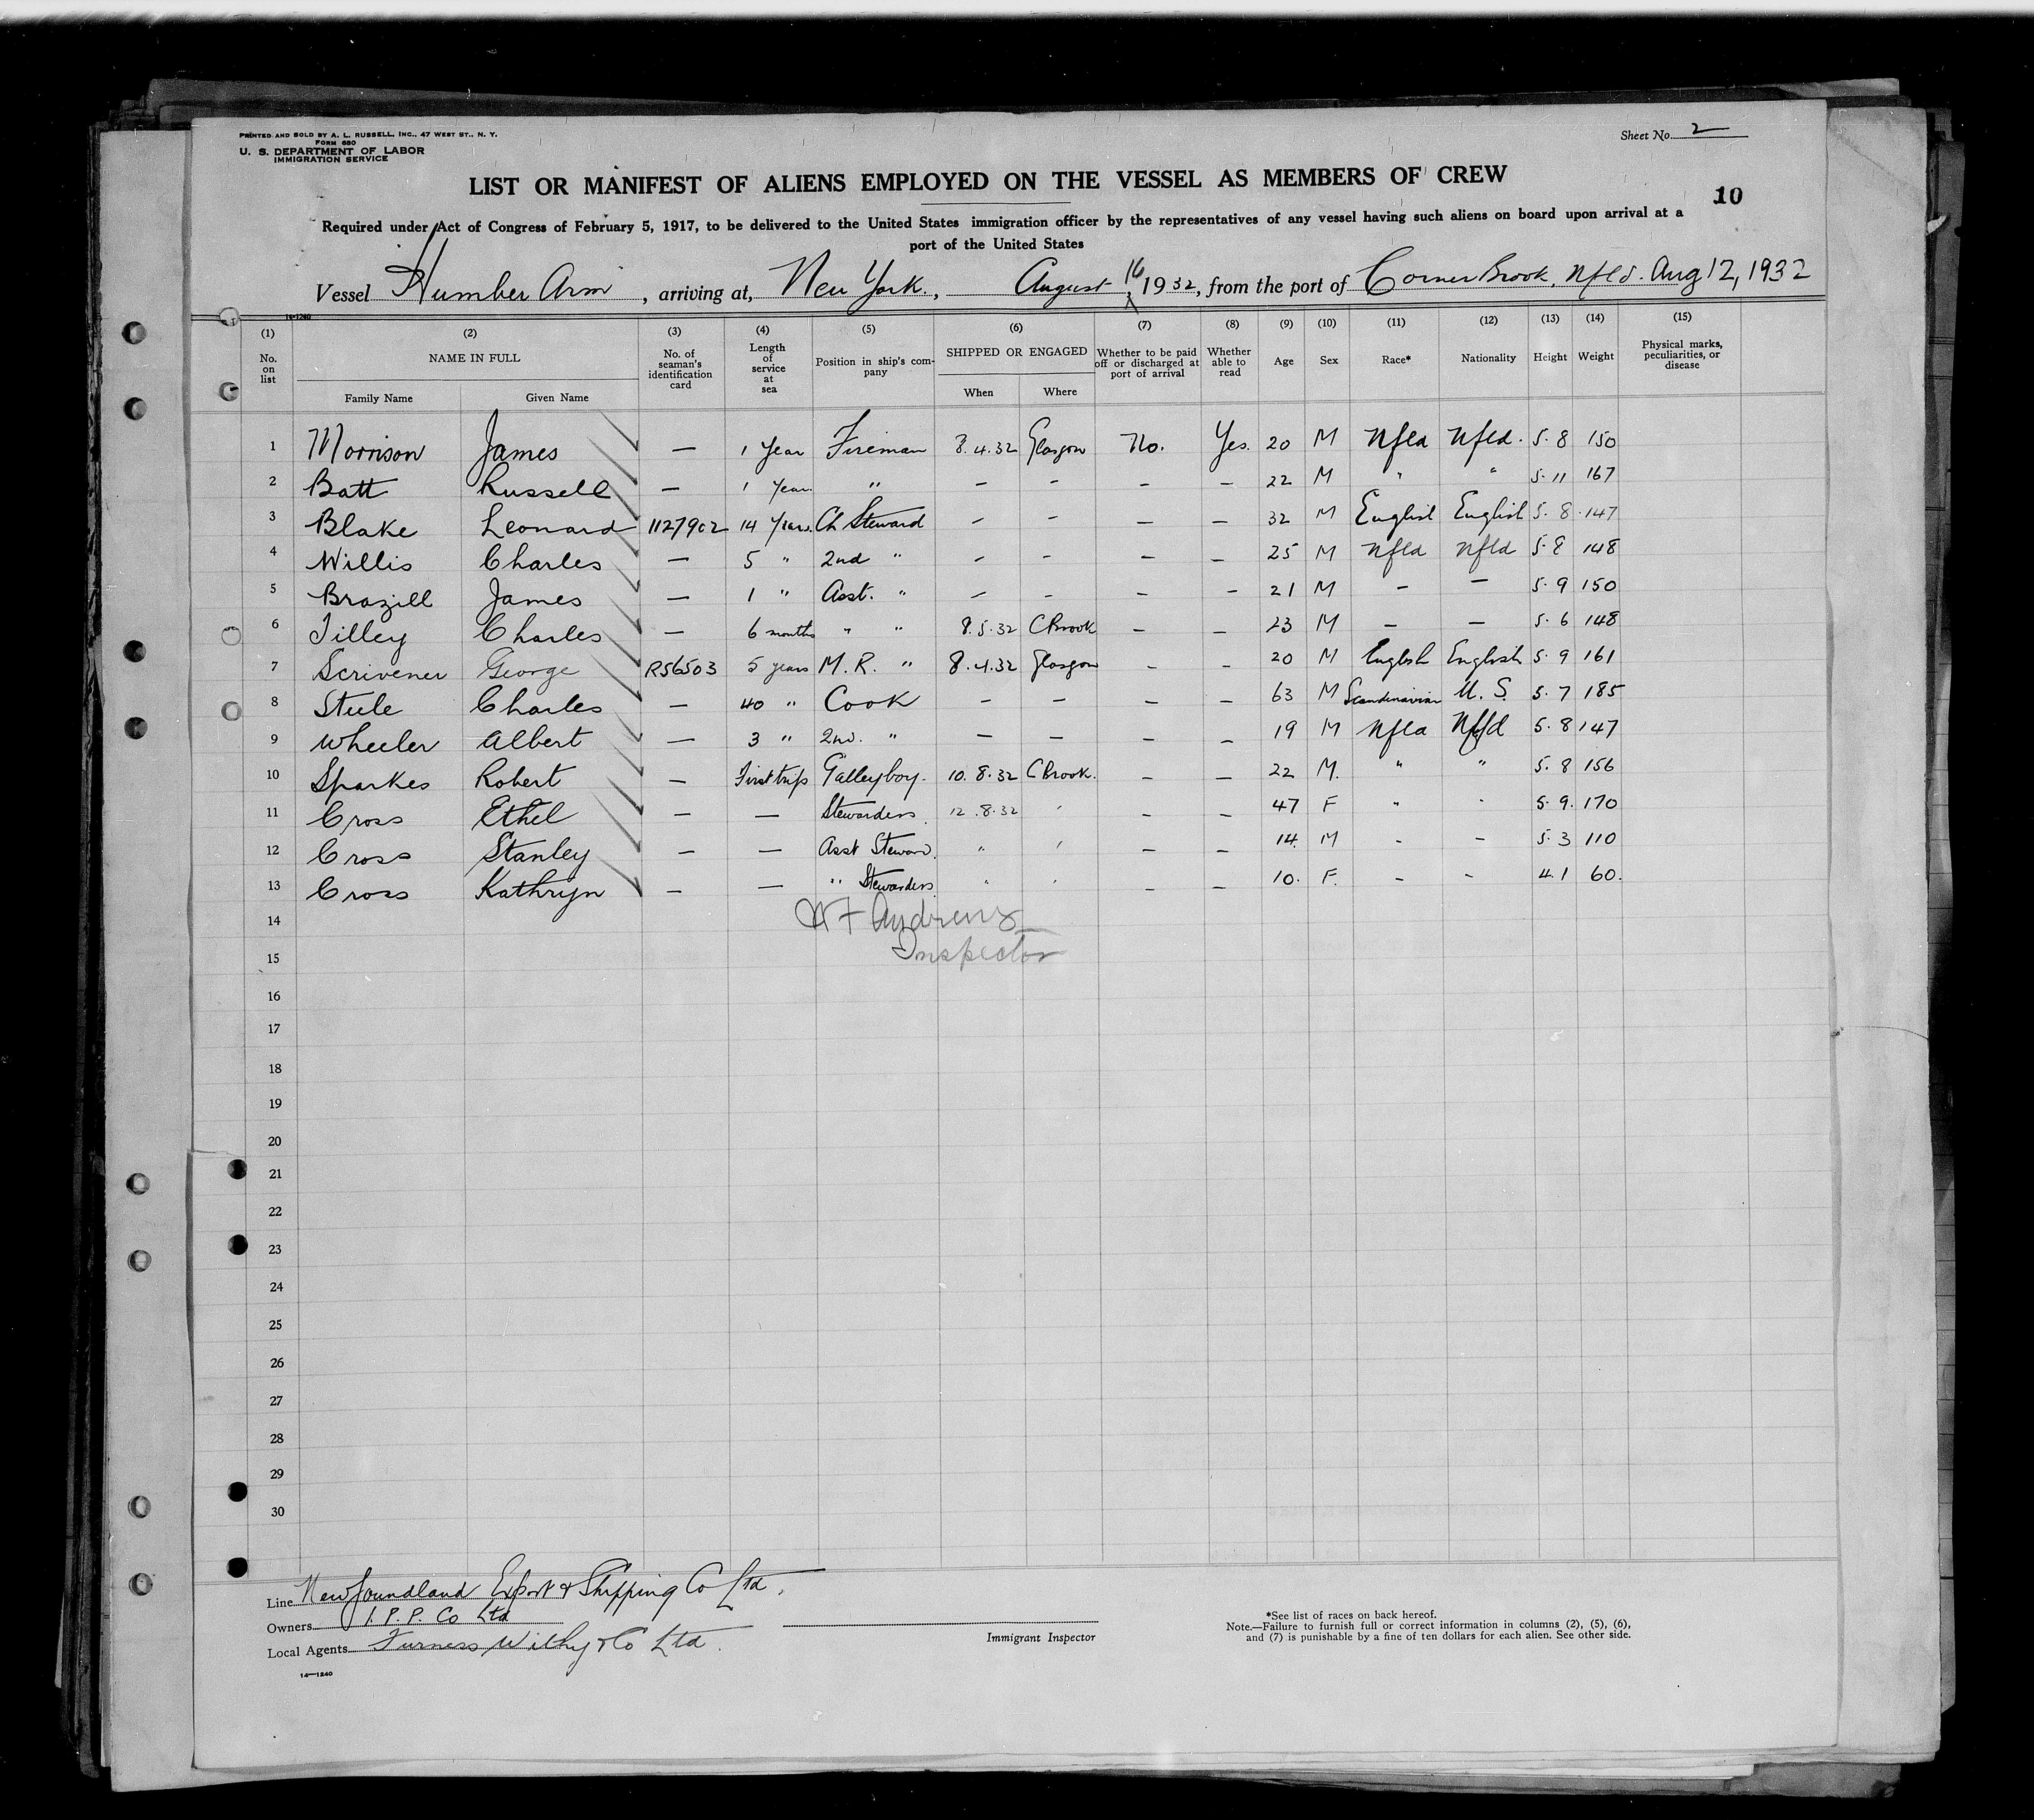 PRINTED AND SOLD BY A. L. RUSSELL, INC., 47 WEST ST., N. Y.
FORM 680
U. S. DEPARTMENT OF LABOR
IMMIGRATION SERVICE
Sheet No. 2
LIST OR MANIFEST OF ALIENS EMPLOYED ON THE VESSEL AS MEMBERS OF CREW
10
Required under Act of Congress of February 5, 1917, to be delivered to the United States immigration officer by the representatives of any vessel having such aliens on board upon arrival at a
port of the United States
Vessel Humber Arm, arriving at, New York., August 16, 1932, from the port of Corner Brook, Nfld. Aug 12, 1932
14-1240
(1) (2) (3) (4) (5) (6) (7) (8) (9) (10) (11) (12) (13) (14) (15)
No. on list NAME IN FULL No. of seaman's identification card Length of service at sea Position in ship's company SHIPPED OR ENGAGED Whether to be paid off or discharged at port of arrival Whether able to read Age Sex Race* Nationality Height Weight Physical marks, peculiarities, or disease
Family Name Given Name When Where
1 Morrison James — 1 Year Fireman 8.4.32 Glasgow No. Yes. 20 M Nfld Nfld. 5.8 150
2 Batt Russell — 1 Year " – – – – 22 M " " 5.11 167
3 Blake Leonard 1127902 14 Years. Ch Steward – – – – 32 M English English 5.8 147
4 Willis Charles — 5 " 2nd " – – – – 25 M Nfld Nfld 5.8 148
5 Brazill James — 1 " Asst. " – – – – 21 M – – 5.9 150
6 Tilley Charles — 6 months " " 8.5.32 C Brook – – 23 M – – 5.6 148
7 Scrivener George R56503 5 years M.R. " 8.4.32 Glasgow – – 20 M English English 5.9 161
8 Steele Charles — 40 " Cook – – – – 63 M Scandinavian U.S. 5.7 185
9 Wheeler Albert — 3 " 2nd. " – – – – 19 M Nfld Nfld 5.8 147
10 Sparkes Robert — First trip Galleyboy. 10.8.32 C Brook. – – 22 M. " " 5.8 156
11 Cross Ethel — — Stewardess. 12.8.32 ' – – 47 F " " 5.9. 170
12 Cross Stanley — — Asst Steward. " ' – – 14. M – – 5.3 110
13 Cross Kathryn — — " Stewardess " ' – – 10. F. – – 4.1 60.
14 Andrews
15 Inspector
16
17
18
19
20
21
22
23
24
25
26
27
28
29
30
Line Newfoundland Export & Shipping Co Ltd.
Owners I. P. P. Co Ltd
Local Agents Furness Withy & Co Ltd.
14—1240
Immigrant Inspector
*See list of races on back hereof.
Note.—Failure to furnish full or correct information in columns (2), (5), (6),
and (7) is punishable by a fine of ten dollars for each alien. See other side.